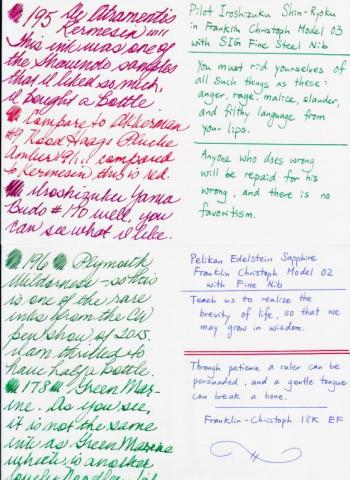 195 De Atramentis
Kermesin
This ink was one of
the Shawndo samples
that I liked so much,
I bought a bottle
Compare to Akkerman
#9 Rood Haags Pluche
Amber #91... compared
to Kermesin, this is red.
Iroshizuku Yama
Budo #170 well, you
can see what I like.
Pilot Iroshizuku Shin-Ryoku
in Franklin Christoph Model 03
with SIG Fine Steel Nib
You must rid yourselves of
all such things as these:
anger, rage, malice, slander,
and filthy language from
your lips.
Anyone who does wrong
will be repaid for his
wrong, and there is no
favoritism.
196 Plymouth
so this
is one of the rare
inks from the
Pen Show of 2015.
I am thrilled to
have half a bottle.
178 Green Mar-
ine. As you see,
it is not the same
ink as Green
which is another
lovely Noodler
Pelikan Edelstein Sapphire
Franklin Christoph Model 02
with Fine Nib
Teach us to realize the
brevity of life, so that we
may grow in wisdom.
Through patience a ruler can be
persuaded, and a gentle tongue
can break a bone.
Franklin-Christoph EF